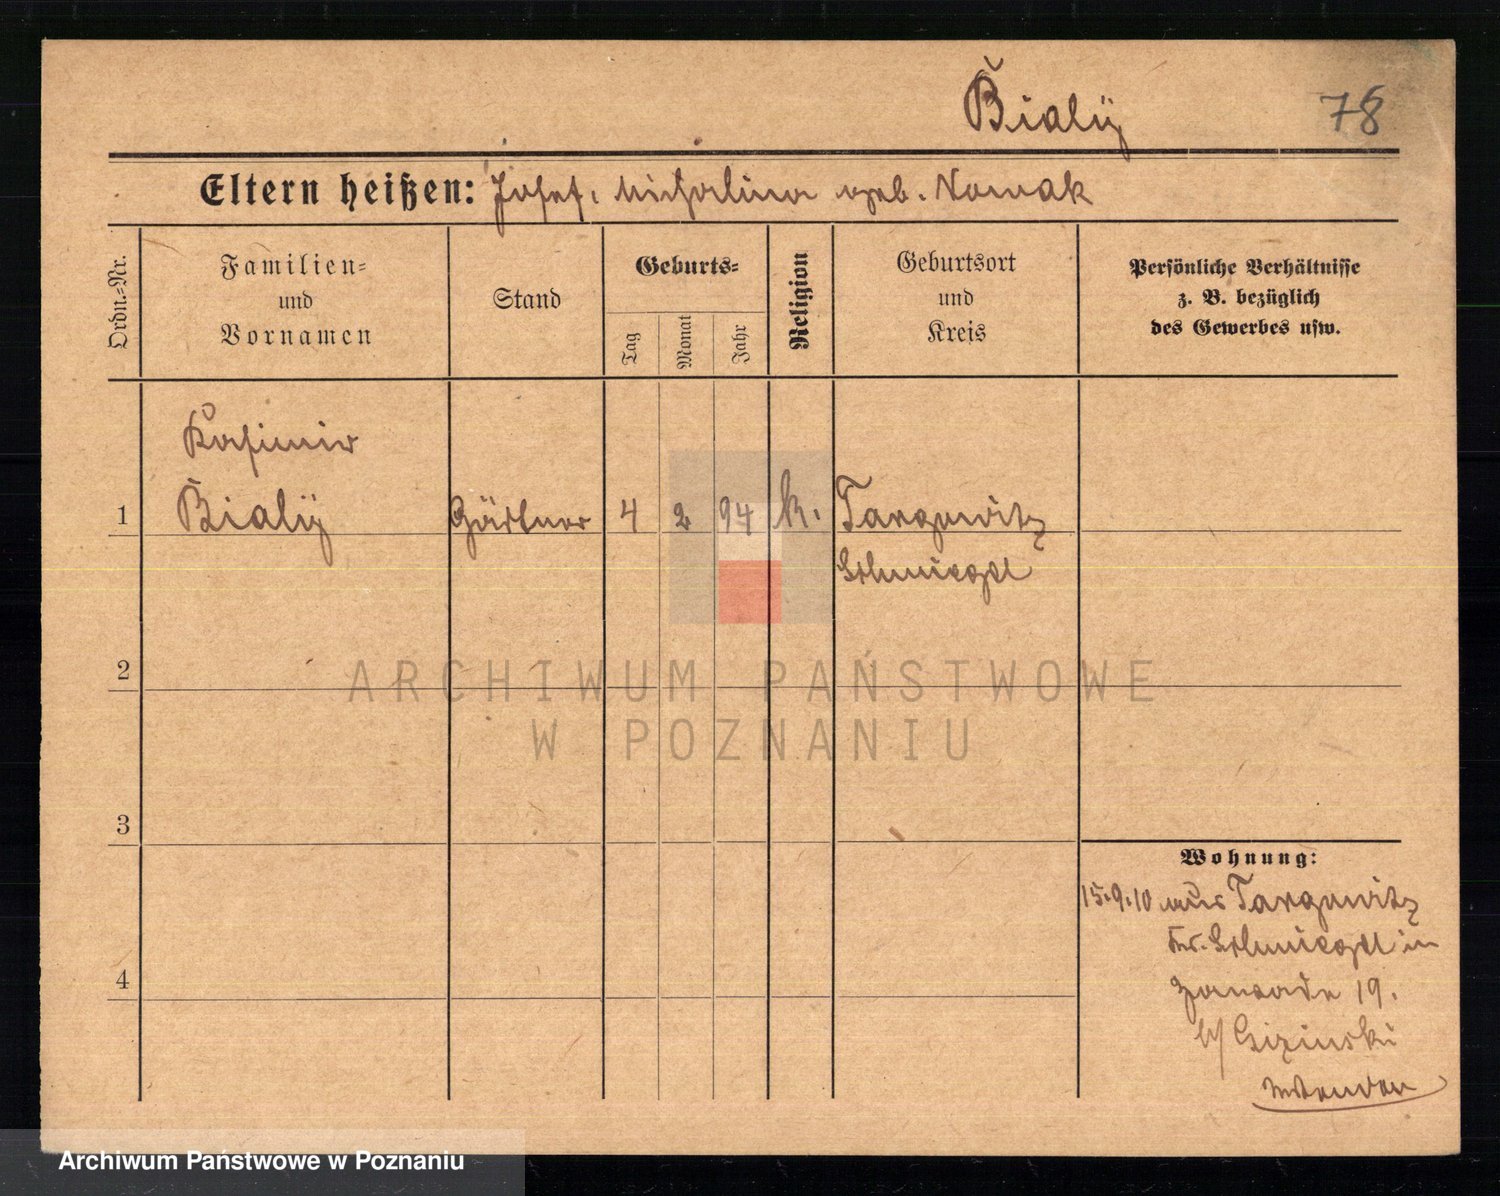 Bialÿ
78
Eltern heißen: Josef, Michalina geb. Nowak
Ordn.=Nr.
Familien=
und
Vornamen
Stand
Geburts=
Tag
Monat
Jahr
Religion
Geburtsort
und
Kreis
Persönliche Verhältnisse
z. B. bezüglich
des Gewerbes usw.
Kasimir
1 Bialÿ Gärtner 4 2 94 k. Targowitz
Schmiegel
ARCHIWUM PAŃSTWOWE
W POZNANIU
2
3
4
Wohnung:
15.9.10 aus Targowitz
Kr. Schmiegel in
19.
b/ Gizinski
Archiwum Państwowe w Poznaniu